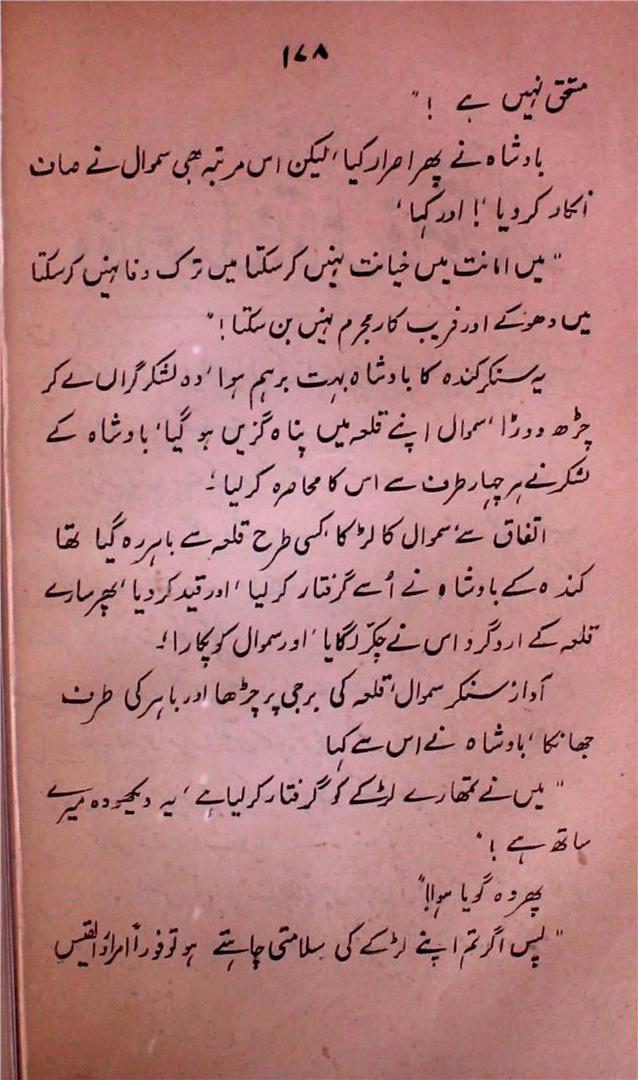 ۱۷۸
مستحق نہیں ہے !"
بادشاہ نے پھر اصرار کیا، لیکن اس مرتبہ بھی سموال نے صاف
انکار کر دیا،! اور کہا،
"میں امانت میں خیانت نہیں کر سکتا میں ترک وفا نہیں کر سکتا
میں دھوکے اور فریب کا مجرم نہیں بن سکتا !"
یہ سنکر کندہ کا بادشاہ بہت برہم ہوا، وہ لشکر گراں لے کر
چڑھ دوڑا، سموال اپنے قلعہ میں پناہ گزیں ہو گیا، بادشاہ کے
لشکر نے ہر چہار طرف سے اس کا محاصرہ کر لیا ؛۔
اتفاق سے، سموال کا لڑکا، کسی طرح قلعہ سے باہر رہ گیا تھا
کندہ کے بادشاہ نے اُسے گرفتار کر لیا، اور قید کر دیا، پھر سارے
قلعہ کے اردگرد اس نے چکّر لگایا، اور سموال کو پکارا !۔
آواز سنکر سموال، قلعہ کی برجی پر چڑھا اور باہر کی طرف
جھانکا، بادشاہ نے اس سے کہا
"میں نے تمھارے لڑکے کو گرفتار کر لیا ہے، یہ دیکھو وہ میرے
ساتھ ہے !"
پھر وہ گویا ہوا!"
"پس اگر تم اپنے لڑکے کی سلامتی چاہتے ہو تو فوراً امراؤ القیس